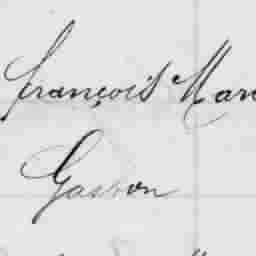 François Mar
Gaston